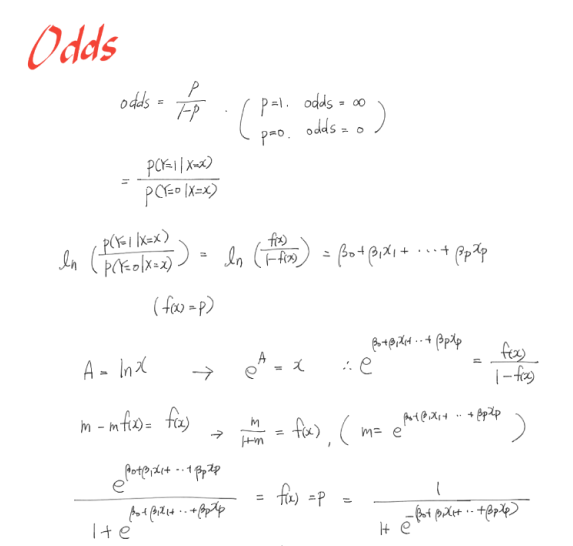 Odds
odds = p/(1-p) . (p=1. odds = ∞
p=0. odds = 0)
= P(Y=1|X=x)/P(Y=0|X=x)
ln (P(Y=1|X=x)/P(Y=0|X=x)) = ln (f(x)/(1-f(x))) = β₀+β₁x₁+ ⋯ + βₚxₚ
(f(x) = p)
A = lnx → e^A = x ∴ e^(β₀+β₁x₁+ ⋯ + βₚxₚ) = f(x)/(1-f(x))
m - mf(x) = f(x) → m/(1+m) = f(x), (m = e^(β₀+β₁x₁+ ⋯ + βₚxₚ))
e^(β₀+β₁x₁+ ⋯ + βₚxₚ)/(1+e^(β₀+β₁x₁+ ⋯ + βₚxₚ)) = f(x) = p = 1/(1+e^-(β₀+β₁x₁+ ⋯ + βₚxₚ))